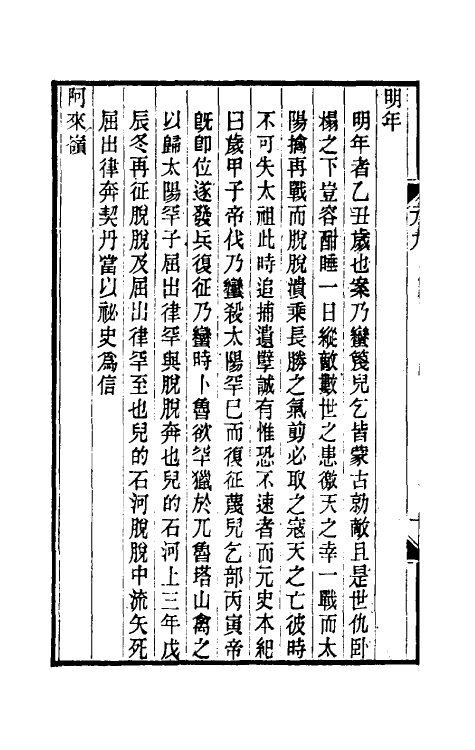 明年
明年者乙丑歲也案乃蠻篾兒乞皆蒙古勍敵且是世仇卧
榻之下豈容酣睡一日縱敵數世之患徼天之幸一戰而太
陽擒再戰而脫脫潰乘長勝之氣剪必取之寇天之亡彼時
不可失太祖此時追捕遺孽誠有惟恐不速者而元史本紀
曰歲甲子帝伐乃蠻殺太陽罕巳而復征蔑兒乞部丙寅帝
旣卽位遂發兵復征乃蠻時卜魯欲罕獵於兀魯塔山禽之
以歸太陽罕子屈出律罕與脫脫奔也兒的石河上三年戊
辰冬再征脫脫及屈出律罕至也兒的石河脫脫中流矢死
屈出律奔契丹當以祕史爲信
阿來嶺